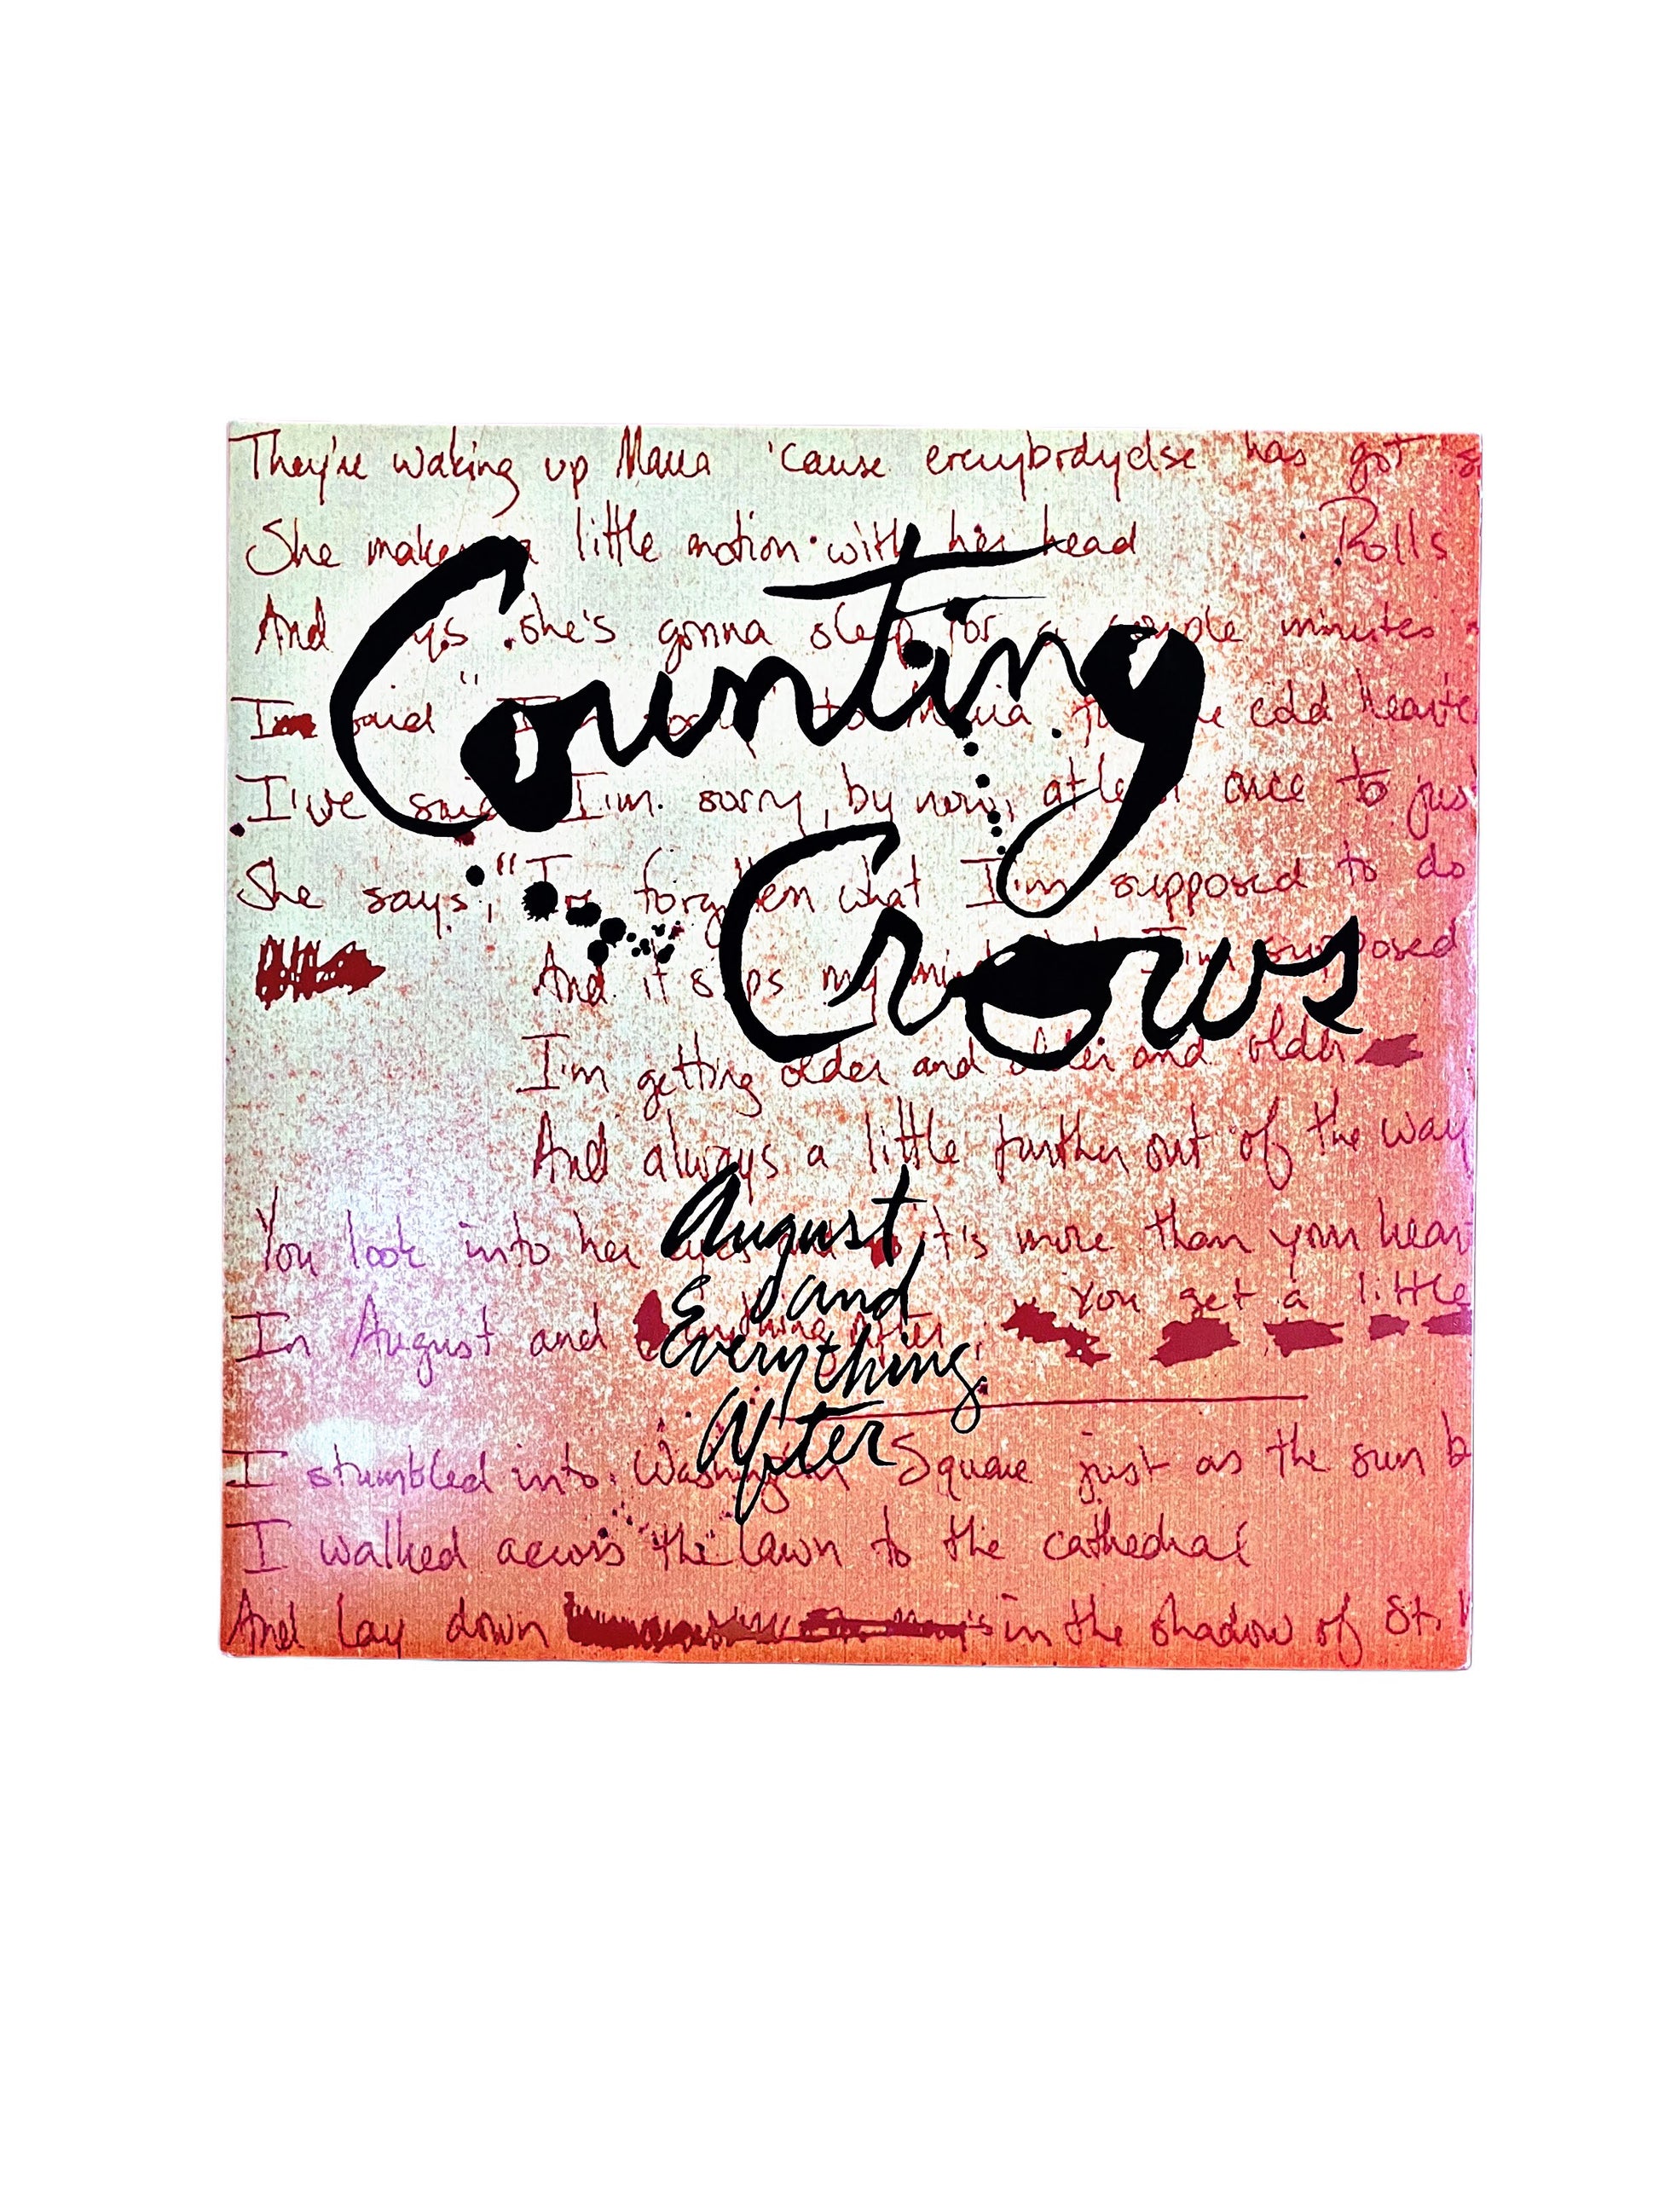 They're waking up Maria 'cause everybodyelse has got
She makes a little motion with her head Rolls
And she's gonna sleep for a couple minutes
I said "I to Maria cold
I've said I'm sorry, by now, at least once to
Counting
She says, "I've forgotten what I'm supposed to do
And it slips my mind I'm supposed
Crows
I'm getting older and older and older
And always a little further out of the way
You look into her eyes it's more than your
August
You get a little
and
In August and everything after,
Everything
After
I stumbled into Washington Square just as the sun
I walked across the lawn to the cathedral
And lay down in the shadow of St.